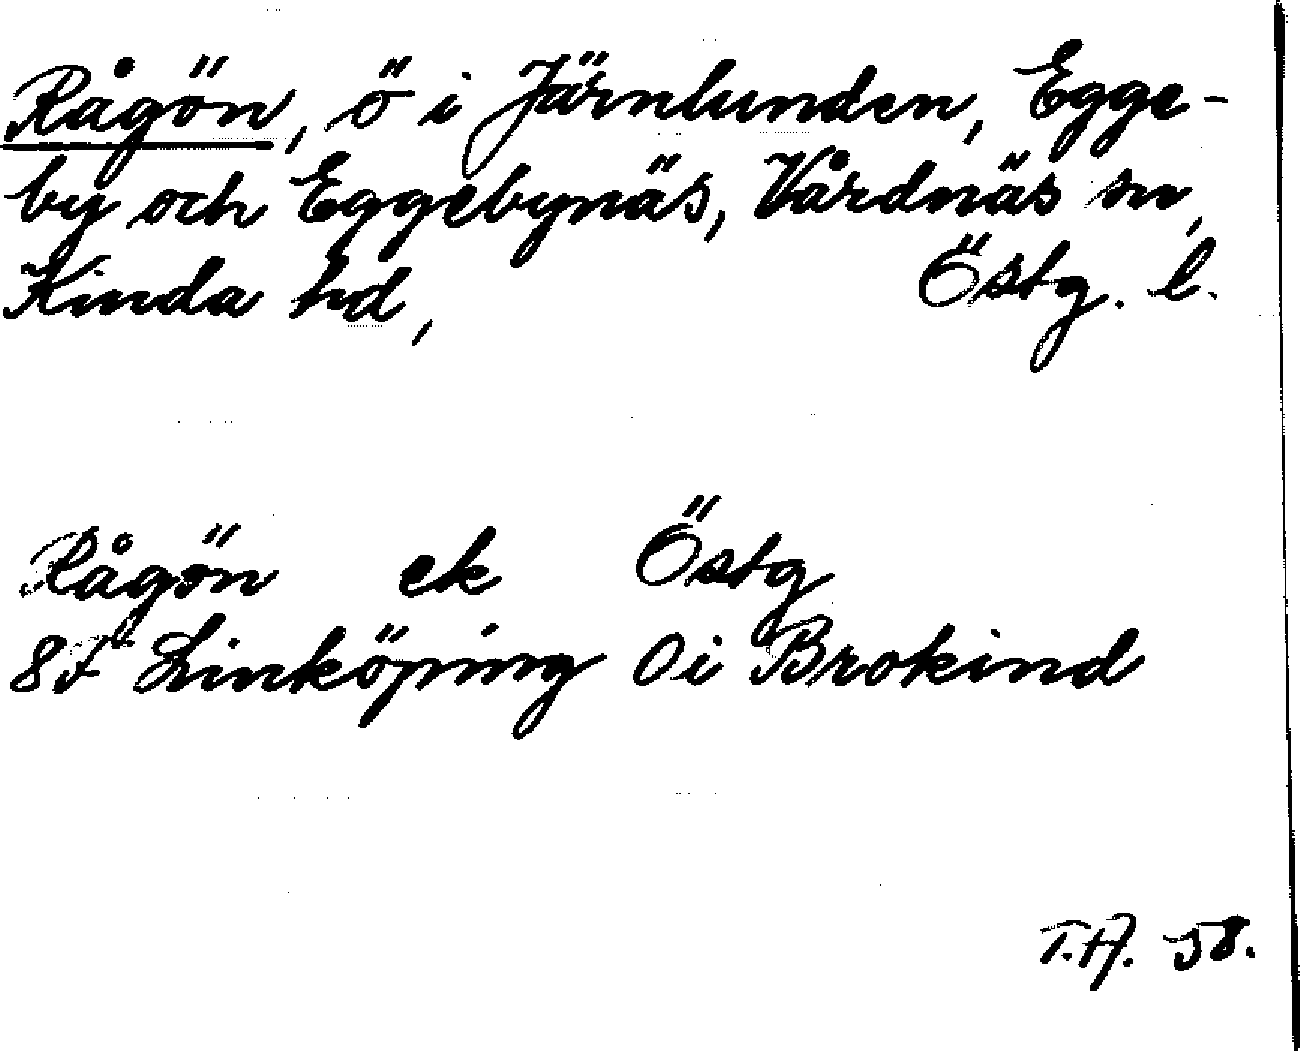 Rågön, ö i Järnlunden, Egge-
by och Eggebynäs, Vårdnäs sn,
Kinda hd, Östg. l.
Rågön ek Östg
8F Linköping 0i Brokind
T.A. 58.